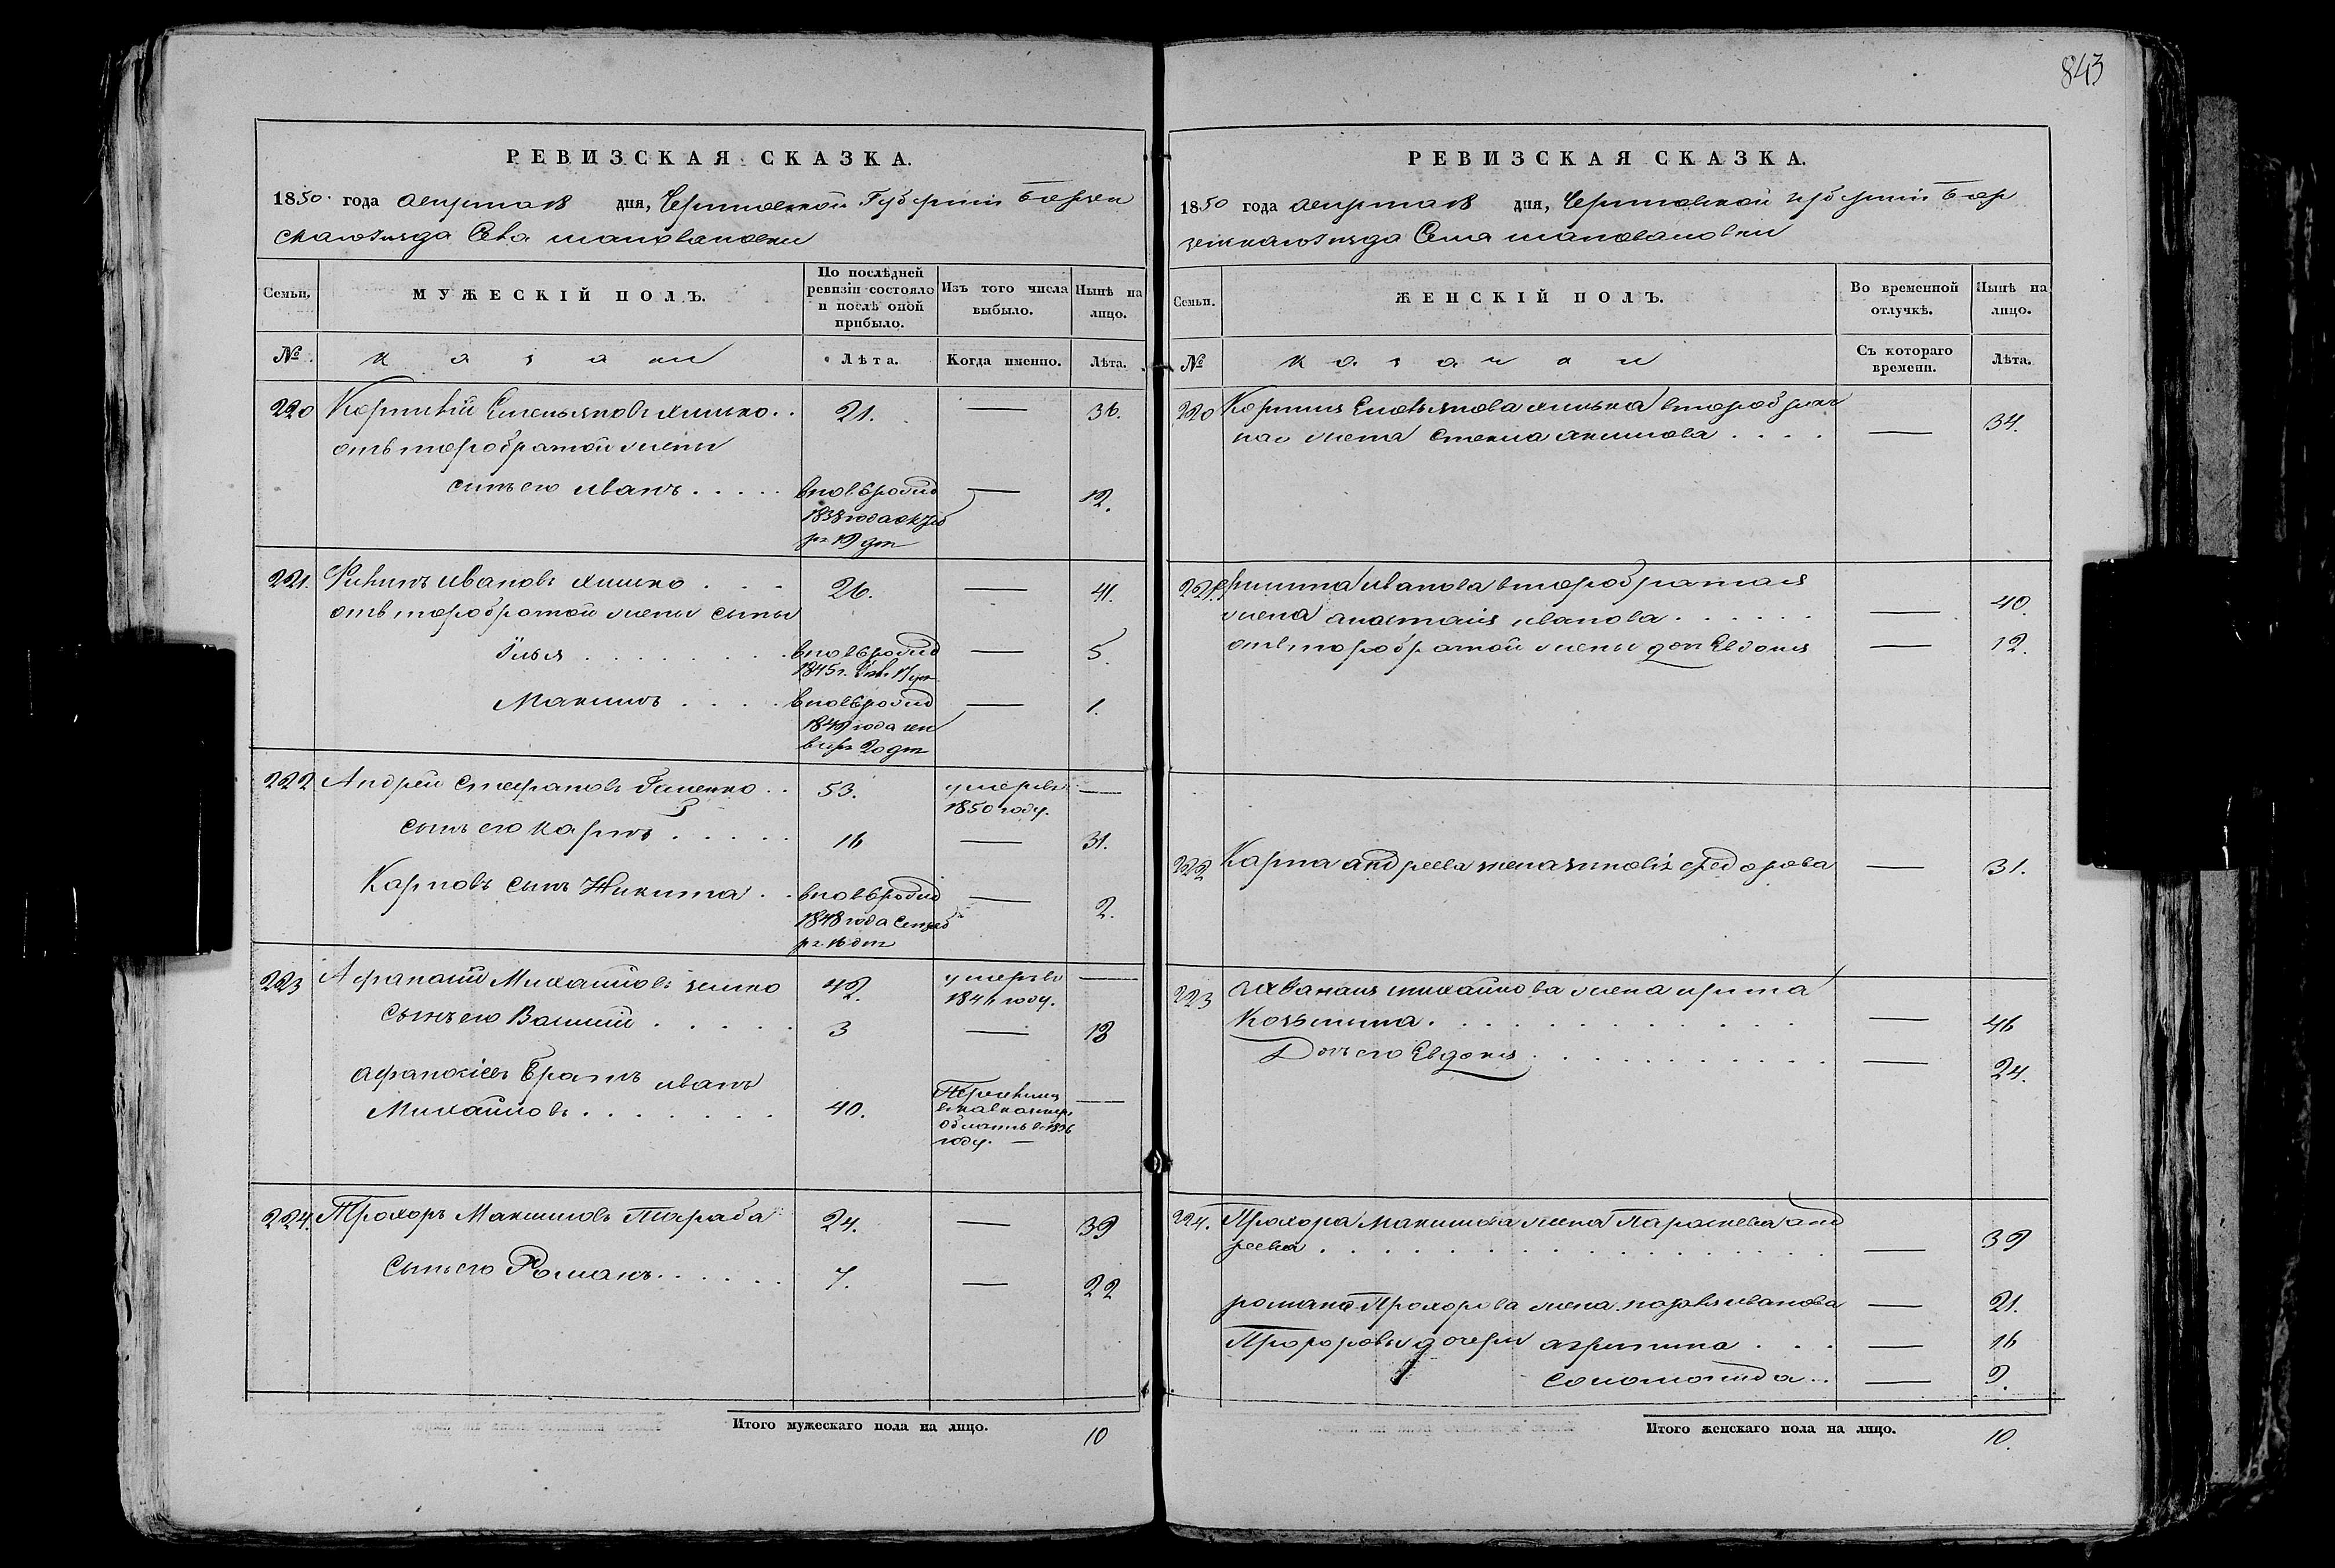 843
РЕВИЗСКАЯ СКАЗКА.
1850 года августа 18 дня, Черниговской Губернии Борзен
скаго уезда Села шаповаловки
Семьи.
МУЖЕСКІЙ ПОЛЪ.
По послѣдней ревизіи состояло и послѣ оной прибыло.
Изъ того числа выбыло.
Нынѣ на лицо.
№
казаки
Лѣта.
Когда именно.
Лѣта.
220 Емельяновъ 21. — 36.
отъ второбрачной жены
сынъ его иванъ вновьрожд — 12.
1838 года октяб
ря 19 дня
221. ивановъ 26. — 41.
отъ второбрачной жены сыны
Илья вновьрожд — 5.
1845 г.
Максимъ вновьрожд — 1.
1849 года ген
варя 20 дня
222 Андрей Стефановъ 53. умеръ въ —
1850 году.
сынъ его карпъ 16 — 31.
Карповъ сынъ Никита вновьрожд — 2.
1848 года Сентяб
ря 16 дня
223 Афанасій Михайловъ 42. умеръ въ —
1846 году.
Сынъ его Василий 3 — 18
афанасіевъ братъ иванъ
Михайловъ 40. —
область в 1836
году. —
224. Прохоръ Максимовъ 24. — 39
Сынъ его Романъ 7. — 22
Итого мужескаго пола на лицо. 10
РЕВИЗСКАЯ СКАЗКА.
1850 года августа 18 дня, Черниговской губернии Бор
зенскаго уезда Села шаповаловки
Семьи.
ЖЕНСКІЙ ПОЛЪ.
Во временной отлучкѣ.
Нынѣ на лицо.
№
казачки
Съ котораго времени.
Лѣта.
220 Емельянова второбрач
ная жена акимова — 34.
221. иванова второбрачная
жена анастасия иванова — 40.
отъ второбрачной жены дочь Евдокия — 12.
222 Карпа андреева жена зиновия федорова — 31.
223 михайлова жена ирина
Козьмина — 46
Дочь его Евдокия — 24.
224. Прохора максимова жена Парасковия анд
реева — 39
романа Прохорова жена иванова — 21.
Прохоровы дочери агрипина — 16
Соломонида — 9.
Итого женскаго пола на лицо. 10.